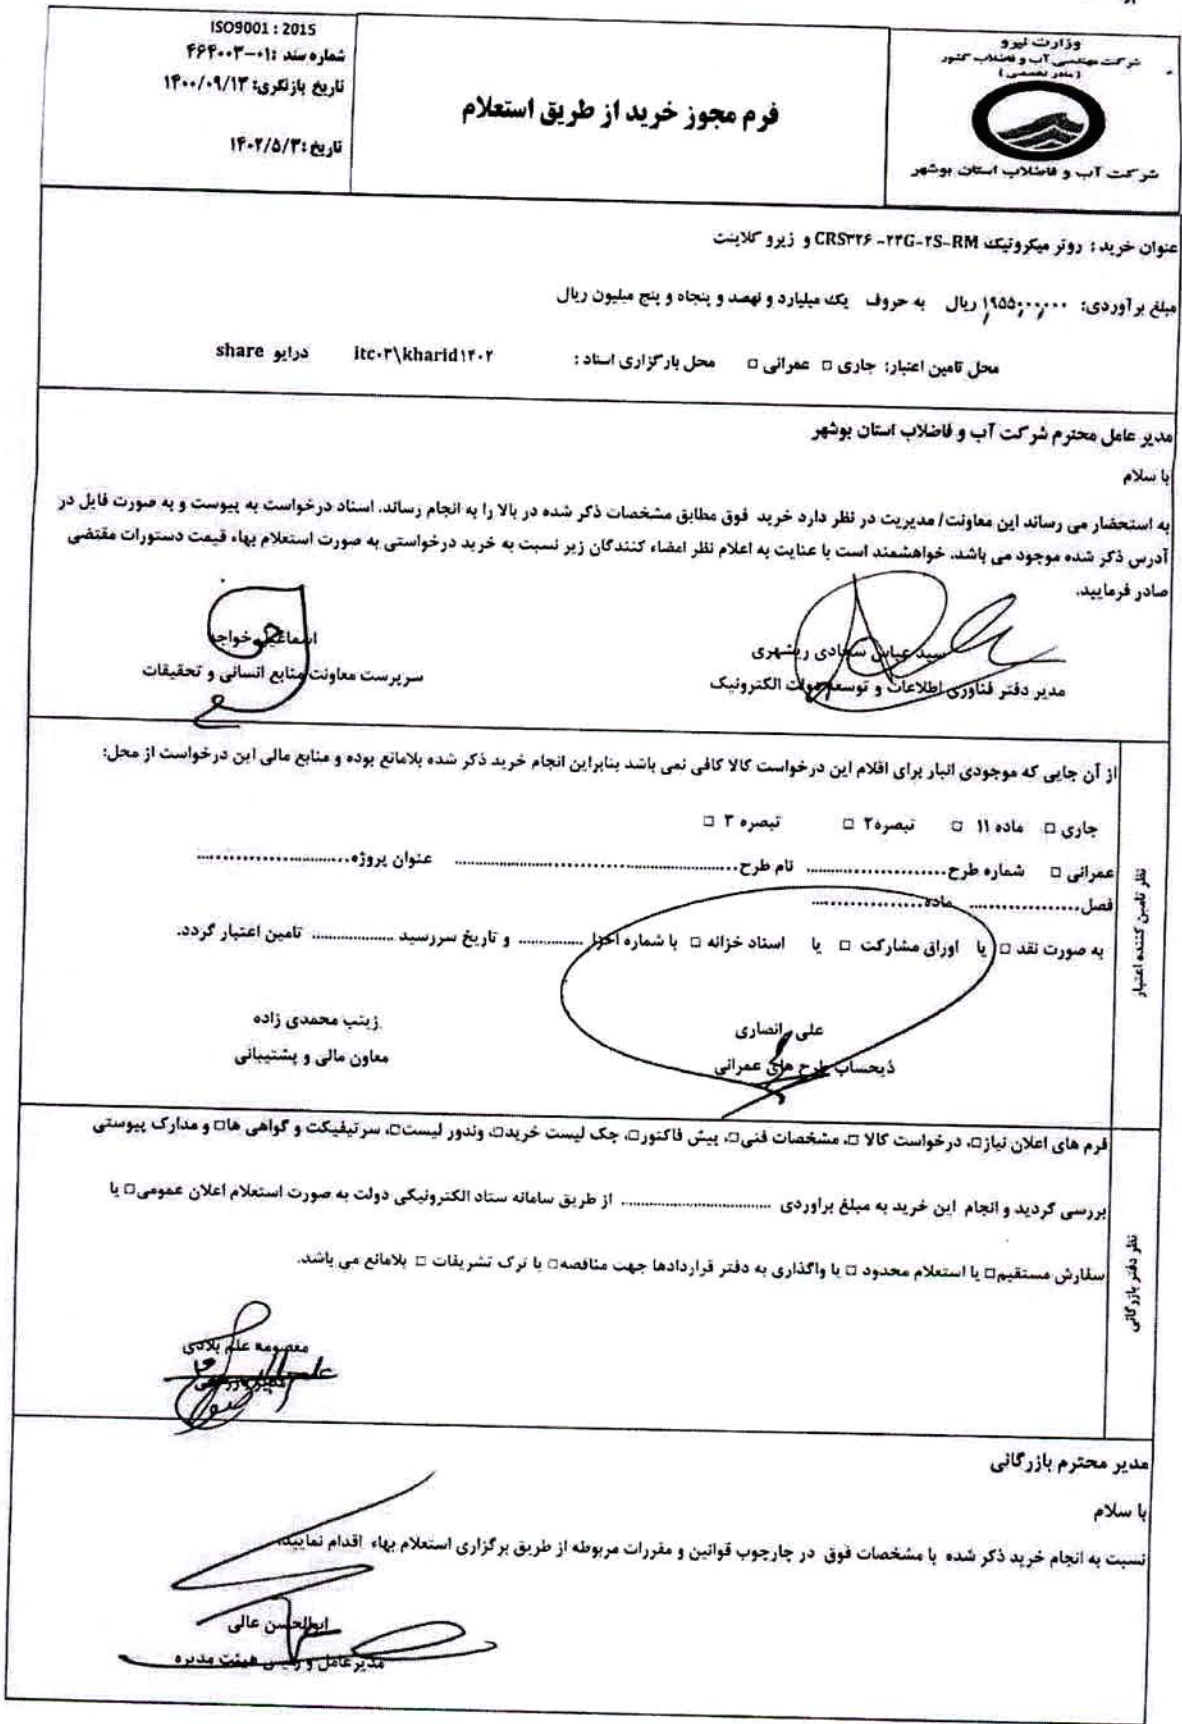 ISO9001 : 2015
شماره سند :۰۱-۴۶۴۰۰۳
تاریخ بازنگری: ۱۴۰۰/۰۹/۱۳
تاریخ :۱۴۰۲/۵/۳
فرم مجوز خرید از طریق استعلام
وزارت نیرو
شرکت مهندسی آب و فاضلاب کشور
(مادر تخصصی)
شرکت آب و فاضلاب استان بوشهر
عنوان خرید : روتر میکروتیک CRS۳۲۶ -۲۴G-۲S-RM و زیرو کلاینت
مبلغ برآوردی: ۱,۹۵۵,۰۰۰,۰۰۰ ریال به حروف یک میلیارد و نهصد و پنجاه و پنج میلیون ریال
محل تامین اعتبار: جاری □ عمرانی □ محل بارگزاری اسناد : itc۰۳\kharid۱۴۰۲ درایو share
مدیر عامل محترم شرکت آب و فاضلاب استان بوشهر
با سلام
به استحضار می رساند این معاونت/ مدیریت در نظر دارد خرید فوق مطابق مشخصات ذکر شده در بالا را به انجام رساند. اسناد درخواست به پیوست و به صورت فایل در
آدرس ذکر شده موجود می باشد. خواهشمند است با عنایت به اعلام نظر امضاء کنندگان زیر نسبت به خرید درخواستی به صورت استعلام بهاء قیمت دستورات مقتضی
صادر فرمایید.
سید عباس سجادی ریشهری
مدیر دفتر فناوری اطلاعات و توسعه دولت الکترونیک
اسماعیل خواجه
سرپرست معاونت منابع انسانی و تحقیقات
نظر تامین کننده اعتبار
از آن جایی که موجودی انبار برای اقلام این درخواست کالا کافی نمی باشد بنابراین انجام خرید ذکر شده بلامانع بوده و منابع مالی این درخواست از محل:
جاری □ ماده ۱۱ □ تبصره۲ □ تبصره ۳ □
عمرانی □ شماره طرح........................ نام طرح................................................ عنوان پروژه..........................
فصل................... ماده....................
به صورت نقد □ یا اوراق مشارکت □ یا اسناد خزانه □ با شماره اخزا ............... و تاریخ سررسید ................... تامین اعتبار گردد.
علی انصاری
ذیحساب طرح های عمرانی
زینب محمدی زاده
معاون مالی و پشتیبانی
نظر دفتر بازرگانی
فرم های اعلان نیاز□، درخواست کالا □، مشخصات فنی□، پیش فاکتور□، چک لیست خرید□، وندور لیست□، سرتیفیکت و گواهی ها□ و مدارک پیوستی
بررسی گردید و انجام این خرید به مبلغ براوردی .................................. از طریق سامانه ستاد الکترونیکی دولت به صورت استعلام اعلان عمومی□ یا
سفارش مستقیم□ یا استعلام محدود □ یا واگذاری به دفتر قراردادها جهت مناقصه□ یا ترک تشریفات □ بلامانع می باشد.
معصومه علم بلادی
مدیر بازرگانی
مدیر محترم بازرگانی
با سلام
نسبت به انجام خرید ذکر شده با مشخصات فوق در چارچوب قوانین و مقررات مربوطه از طریق برگزاری استعلام بهاء اقدام نمایید.
ابوالحسن عالی
مدیرعامل و رئیس هیئت مدیره